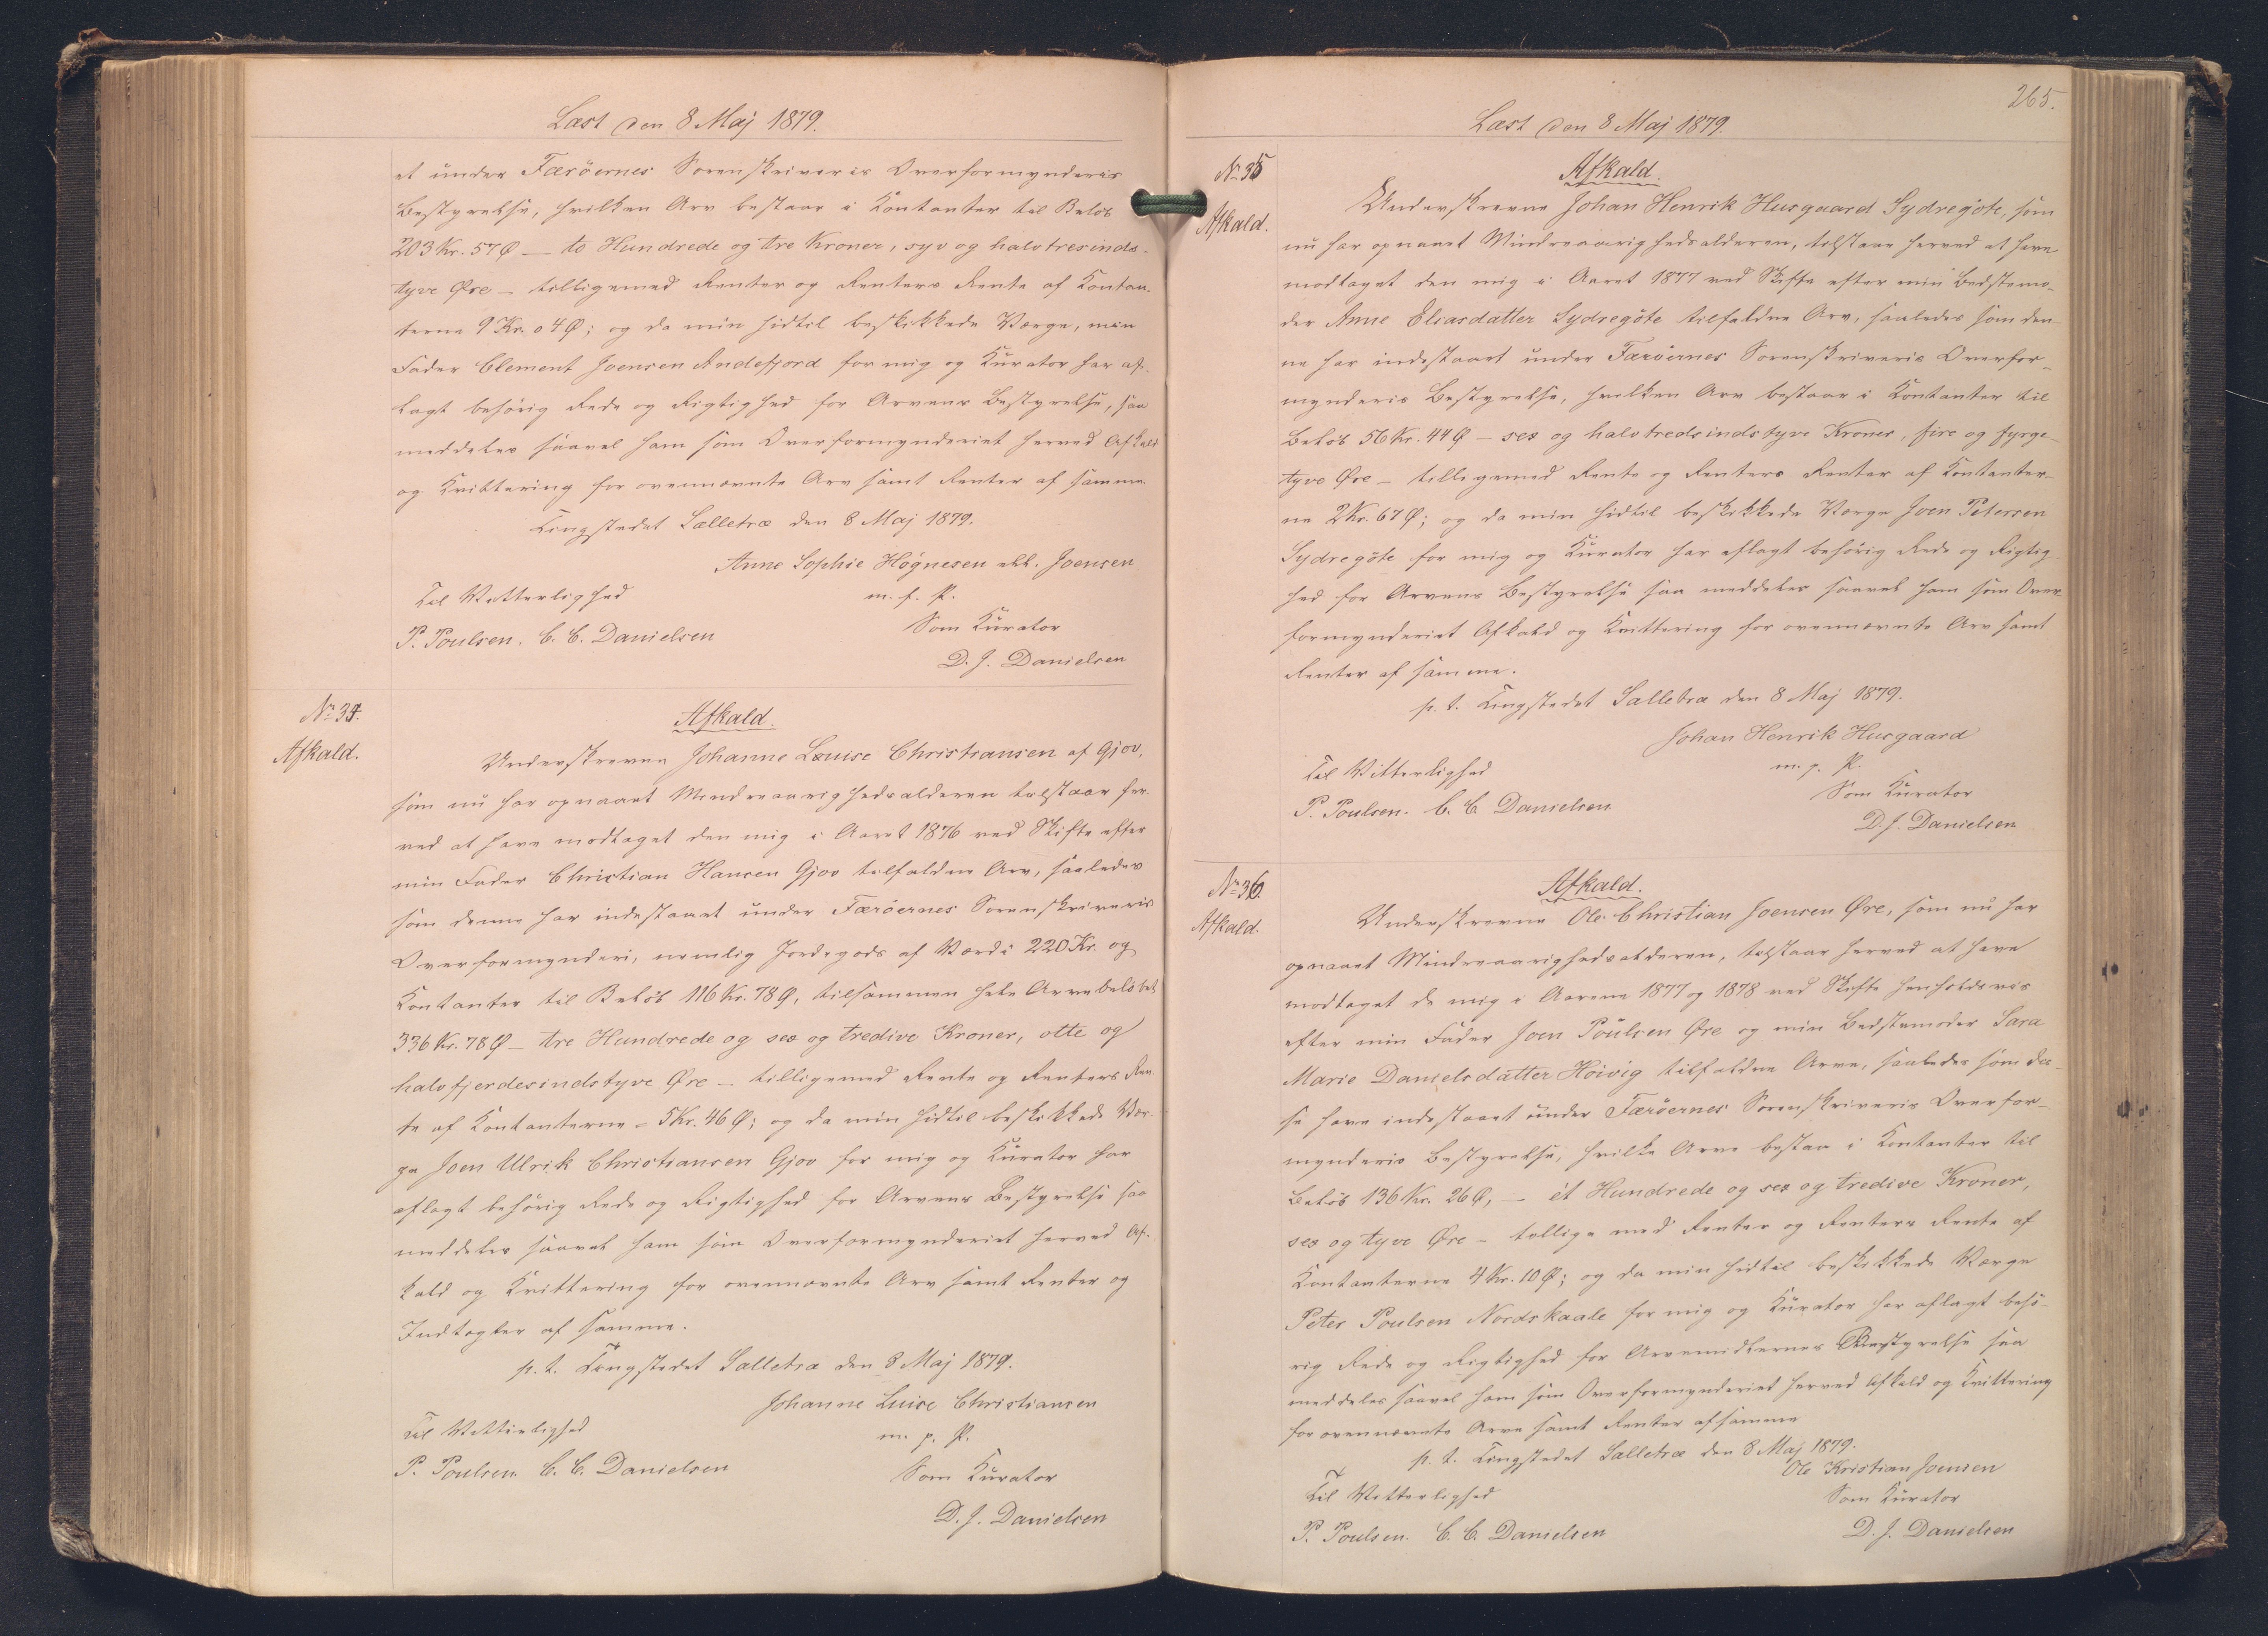 Læst den 8 Maj 1879.
et under Færöernes Sorenskriveris Overformynderis
Bestyrelse, hvilken Arv bestaar i Kontanter til Beløb
203 Kr. 57 Ø — to Hundrede og tre Kroner, syv og halvtresinds-
tyve Øre — tilligemed Renter og Renters Rente af Kontan-
terne 9 Kr. 04 Ø; og da min hidtil beskikkede Værge, min
Fader Clement Joensen Andefjord for mig og Kurator har af-
lagt behörig Rede og Rigtighed for Arvens Bestyrelse, saa
meddeles saavel ham som Overformynderiet herved Afkald
og Kvittering for ovennævnte Arv samt Renter af samme.
Tingstedet Sælletræ den 8 Maj 1879.
Anne Sophie Høgnesen ell. Joensen
Til Vitterlighed
m. f. P.
P. Poulsen. C. C. Danielsen
Som Kurator
D. J. Danielsen
Nr. 34.
Afkald.
Afkald.
Underskrevne Johanne Louise Christiansen af Gjov,
som nu har opnaaet Mindreaarighedsalderen tilstaar her-
ved at have modtaget den mig i Aaret 1876 ved Skifte efter
min Fader Christian Hansen Gjov tilfaldne Arv, saaledes
som denne har indestaaet under Færöernes Sorenskriveris
Overformynderi, nemlig Jordegods af Værdi 220 Kr. og
Kontanter til Beløb 116 Kr. 78 Ø, tilsammen hele Arvebeløbet
336 Kr. 78 Ø — tre Hundrede og sex og tredive Kroner, otte og
halvfjerdesindstyve Øre — tilligemed Rente og Renters Ren-
te af Kontanterne = 5 Kr. 46 Ø; og da min hidtil beskikkede Vær-
ge Joen Ulrik Christiansen Gjov for mig og Kurator har
aflagt behörig Rede og Rigtighed for Arvens Bestyrelse saa
meddeles saavel ham som Overformynderiet herved Af-
kald og Kvittering for ovennævnte Arv samt Renter og
Indtægter af samme.
p. t. Tingstedet Sælletræ den 8 Maj 1879.
Johanne Luise Christiansen
Til Vitterlighed
m. p. P.
P. Poulsen. C. C. Danielsen
Som Kurator
D. J. Danielsen
265.
Læst den 8 Maj 1879.
Nr. 35
Afkald.
Afkald.
Underskrevne Johan Henrik Husgaard Sydregöte, som
nu har opnaaet Mindreaarighedsalderen, tilstaar herved at have
modtaget den mig i Aaret 1877 ved Skifte efter min Bedstemo-
der Anne Eliasdatter Sydregöte tilfaldne Arv, saaledes som den-
ne har indestaaet under Færöernes Sorenskriveris Overfor-
mynderis Bestyrelse, hvilken Arv bestaar i Kontanter til
Beløb 56 Kr. 44 Ø — sex og halvtredsindstyve Kroner, fire og fyrge-
tyve Øre — tilligemed Rente og Renters Renter af Kontanter-
ne 2 Kr. 67 Ø; og da min hidtil beskikkede Værge Joen Petersen
Sydregöte for mig og Kurator har aflagt behörig Rede og Rigtig-
hed for Arvens Bestyrelse saa meddeles saavel ham som Over-
formynderiet Afkald og Kvittering for ovennævnte Arv samt
Renter af samme.
p. t. Tingstedet Sælletræ den 8 Maj 1879.
Johan Henrik Husgaard
Til Vitterlighed
m. p. P.
P. Poulsen. C. C. Danielsen
Som Kurator
D. J. Danielsen
Nr. 36.
Afkald.
Afkald.
Underskrevne Ole Christian Joensen Øre, som nu har
opnaaet Mindreaarighedsalderen, tilstaar herved at have
modtaget de mig i Aarene 1877 og 1878 ved Skifte henholdsvis
efter min Fader Joen Poulsen Øre og min Bedstemoder Sara
Marie Danielsdatter Hoivig tilfaldne Arve, saaledes som dis-
se have indestaaet under Færöernes Sorenskriveris Overfor-
mynderis Bestyrelse, hvilke Arve bestaa i Kontanter til
Beløb 136 Kr. 26 Ø, — ét Hundrede og sex og tredive Kroner,
sex og tyve Øre — tillige med Renter og Renters Rente af
Kontanterne 4 Kr. 10 Ø; og da min hidtil beskikkede Værge
Peter Poulsen Nordskaale for mig og Kurator har aflagt behö-
rig Rede og Rigtighed for Arvemidlernes Bestyrelse saa
meddeles saavel ham som Overformynderiet herved Afkald og Kvittering
for ovennævnte Arve samt Renter af samme
p. t. Tingstedet Sælletræ den 8 Maj 1879.
Ole Kristian Joensen
Til Vitterlighed
Som Kurator
P. Poulsen. C. C. Danielsen
D. J. Danielsen